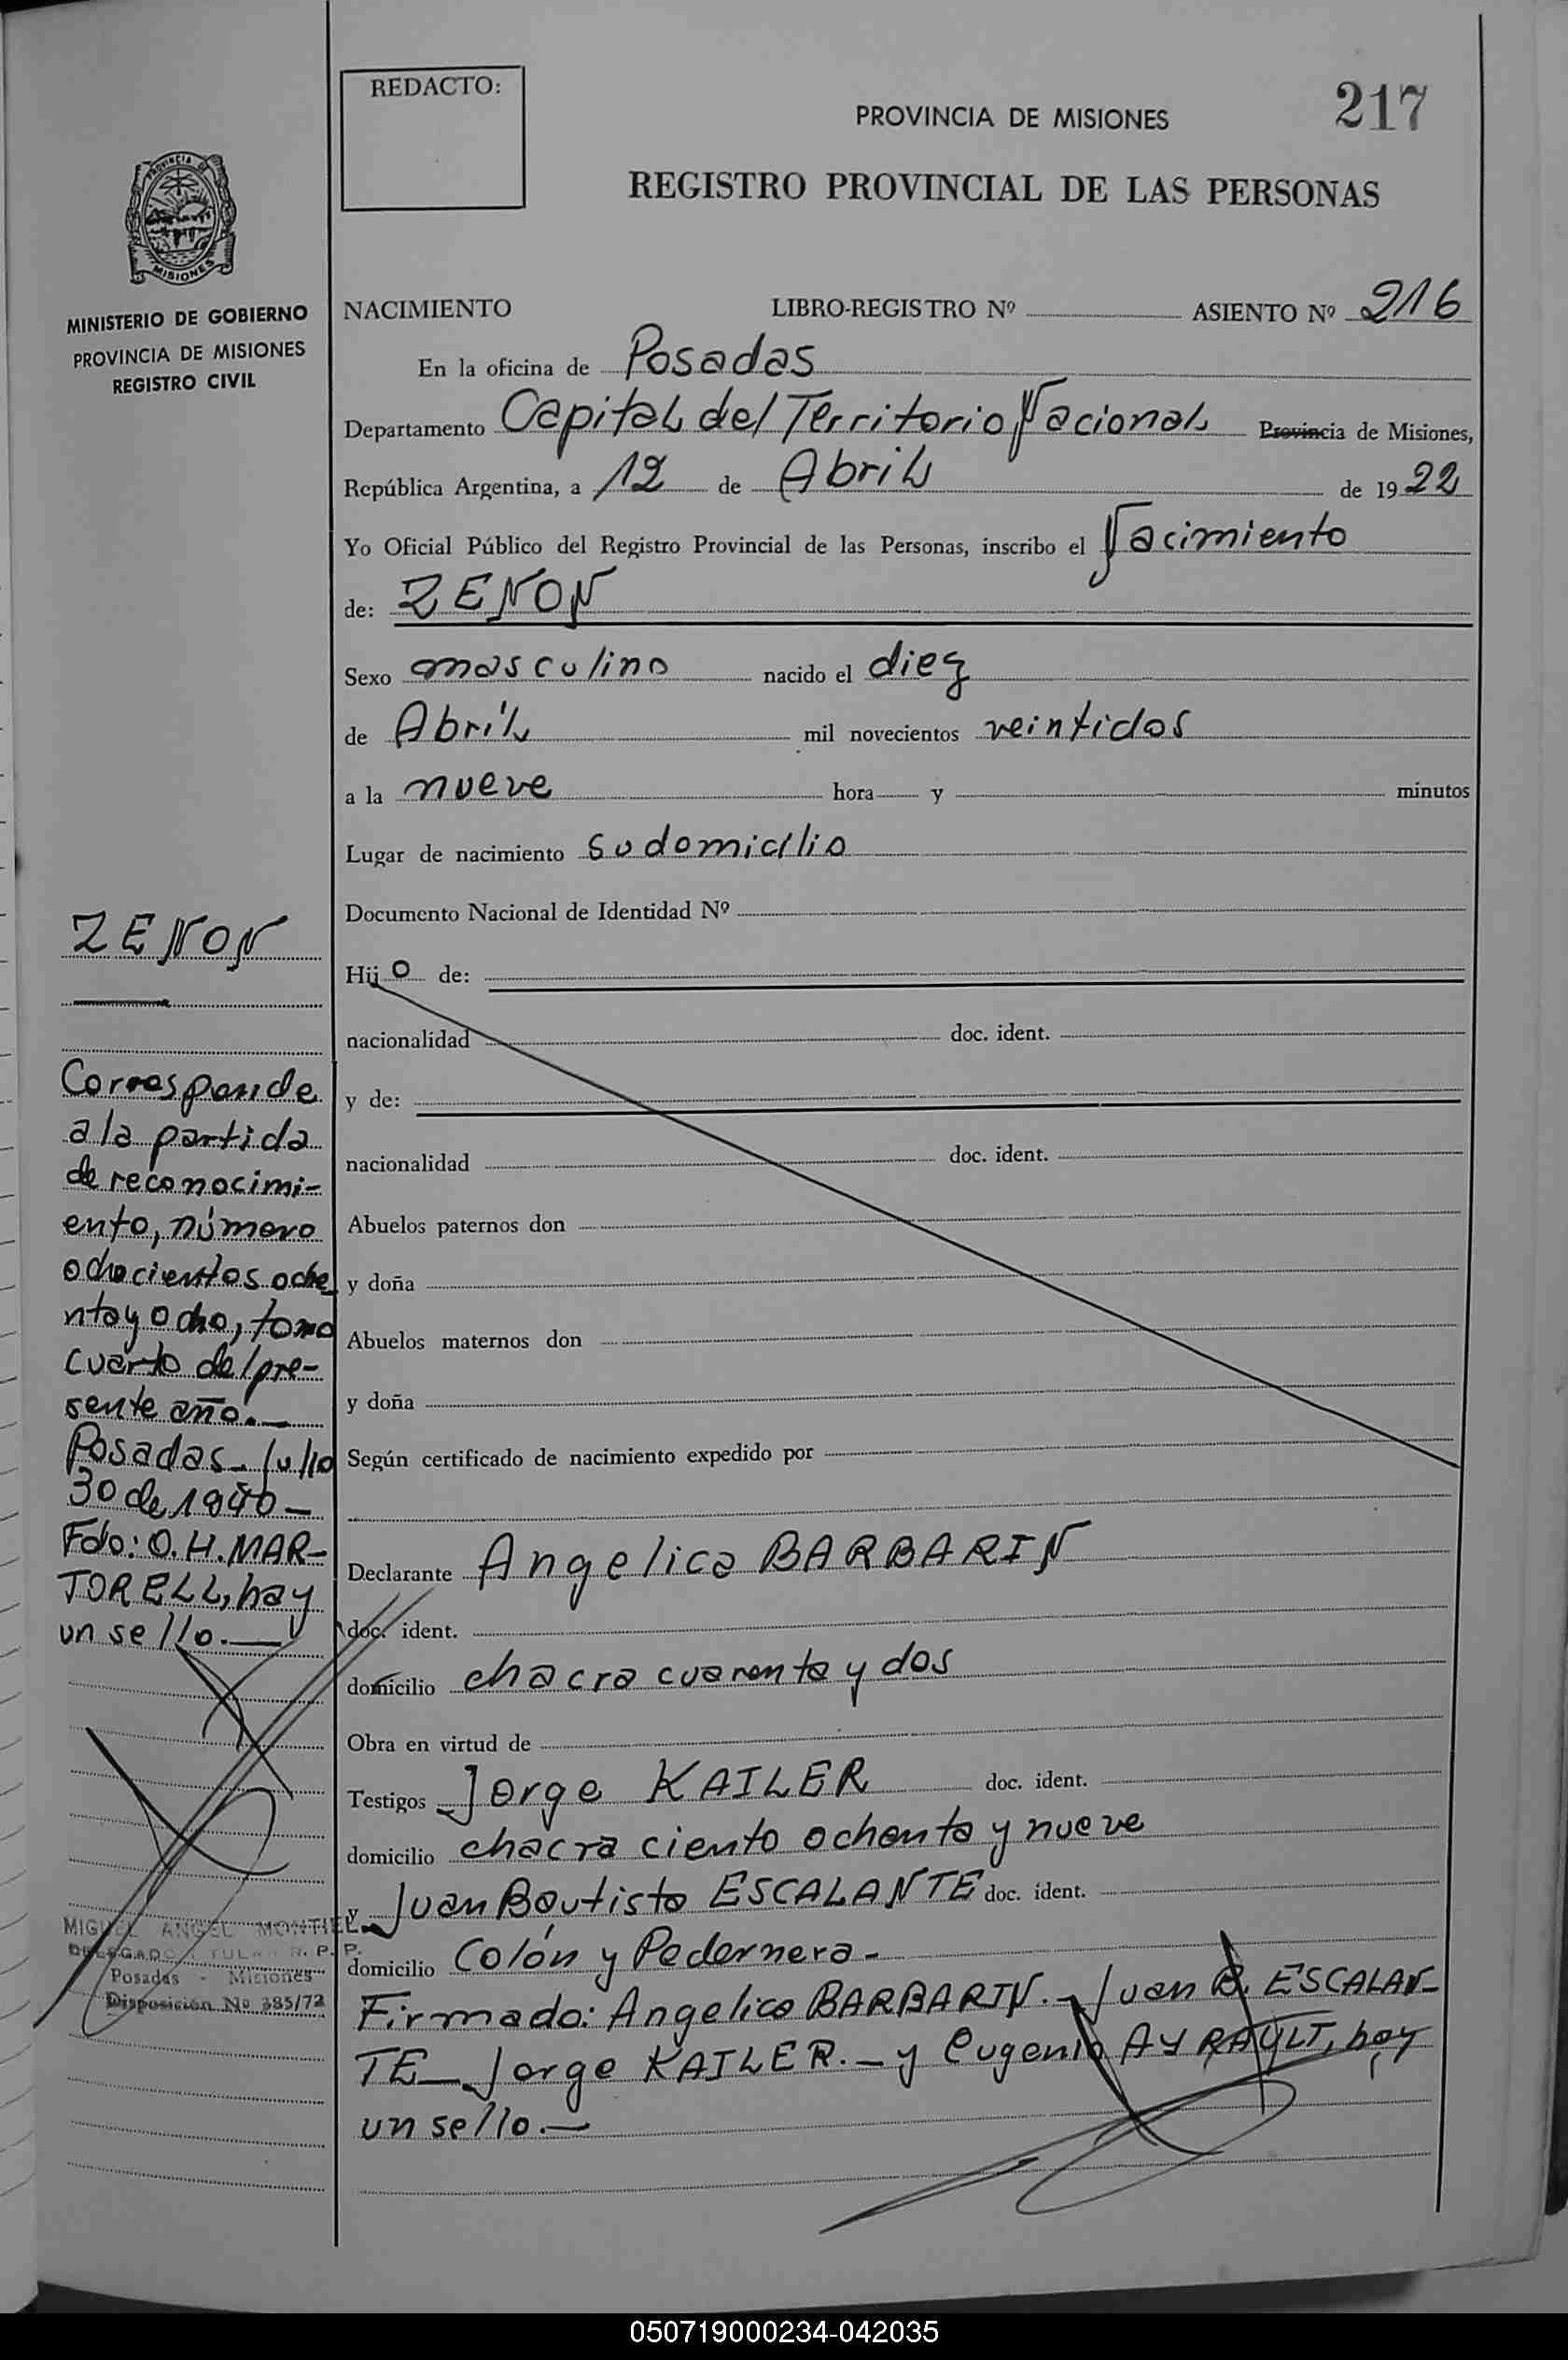 REDACTO:
217
PROVINCIA DE MISIONES
REGISTRO PROVINCIAL DE LAS PERSONAS
PROVINCIA DE
MISIONES
MINISTERIO DE GOBIERNO
PROVINCIA DE MISIONES
REGISTRO CIVIL
NACIMIENTO LIBRO-REGISTRO Nº ASIENTO Nº 216
En la oficina de Posadas
Departamento Capital del Territorio Nacional Provincia de Misiones,
República Argentina, a 12 de Abril de 1922
Yo Oficial Público del Registro Provincial de las Personas, inscribo el Nacimiento
de: ZENON
Sexo masculino nacido el diez
de Abril mil novecientos veintidos
a la nueve hora y minutos
Lugar de nacimiento su domicilio
Documento Nacional de Identidad Nº
Hijo de:
nacionalidad doc. ident.
y de:
nacionalidad doc. ident.
Abuelos paternos don
y doña
Abuelos maternos don
y doña
Según certificado de nacimiento expedido por
Declarante Angelica BARBARIN
doc. ident.
domicilio chacra cuarenta y dos
Obra en virtud de
Testigos Jorge KAILER doc. ident.
domicilio chacra ciento ochenta y nueve
y Juan Bautista ESCALANTE doc. ident.
domicilio Colón y Pedernera.-
Firmado: Angelica BARBARIN.- Juan B. ESCALAN-
TE_ Jorge KAILER.- y Eugenio AYRAULT, hay
un sello.-
ZENON
Corresponde
a la partida
de reconocimi-
ento, número
ochocientos oche
nta y ocho, tomo
cuarto del pre-
sente año.-
Posadas- Julio
30 de 1940-
Fdo: O.H.MAR-
TORELL, hay
un sello.-
MIGUEL ANGEL MONTIEL
DELEGADO TULAR R. P. P.
Posadas - Misiones
Disposición No. 385/72
050719000234-042035